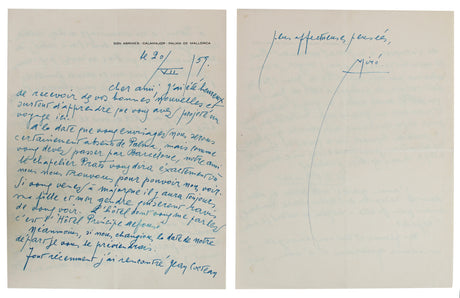 SON ABRINES-CALAMAJOR-PALMA DE MALLORCA
le 20/VII/57.
cher ami, j'ai été heureux
de recevoir de vos bonnes nouvelles et
surtout d'apprendre que vous avez projeté un
voyage ici.
A la date que vous envisagez nous serons
certainement absents de Palma, mais comme
vous devez passer par Barcelone, notre ami
le chapelier Prats vous dira exactement où
nous nous trouvons pour pouvoir nous voir.
Si vous venez à Majorque il y aura toujours
ma fille et mon gendre qui seront ravis
de vous voir. L'hôtel dont vous me parlez
c'est l'Hôtel Principe Alfonso
Néanmoins, si nous changions la date de notre
départ je vous le préviendrais.
Tout récemment j'ai rencontré Jean Cocteau
affectueuses pensées,
Miró